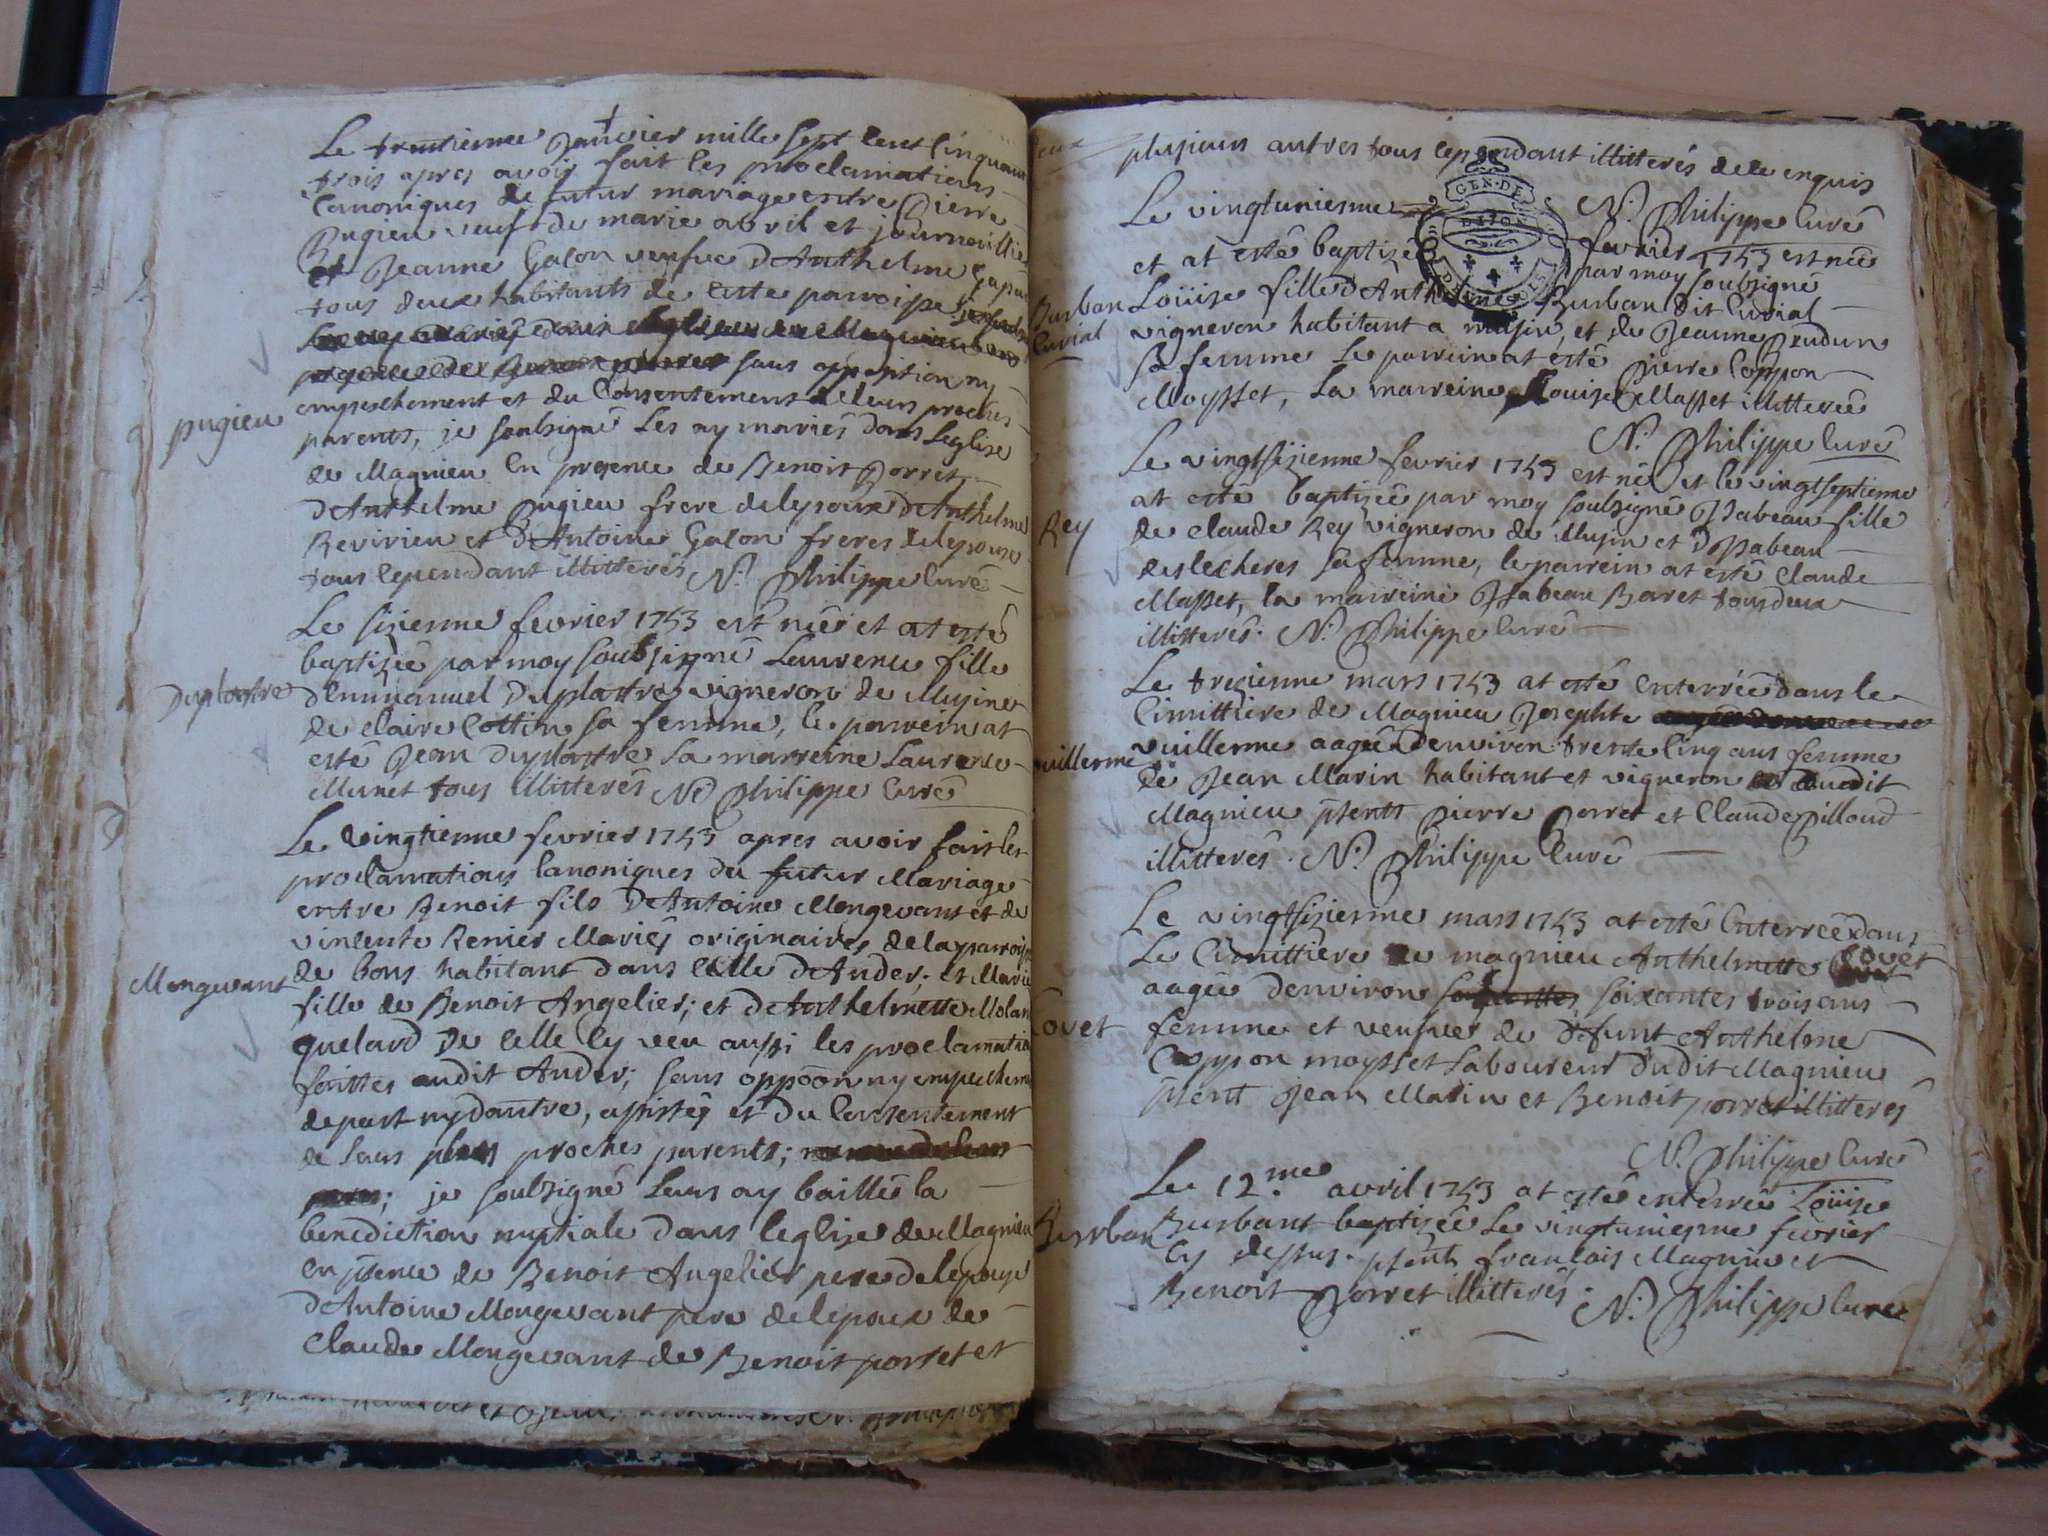 Le trentiesme Janvier mille sept cent cinquante
trois apres avoir fait les proclamations
Canoniques de futur mariage entre Pierre
Pugieu veuf de marie abril et journaillier
et Jeanne Galon veufve D'Anthelme
tous deux habitants de cette parroisse
sans opposition ny
empeschement et du Consentement de leurs proches
parents, je soubsigné Les ay mariés dans Leglise
de Magnieu En presence de Benoit Porret
D'Anthelme Pugieu frere de lepoux D'Anthelme
Revirieu et D'Antoine Galon freres de lepouse
tous cependant illitterés N. Philippe Curé
pugieu
Le sizienne fevrier 1753 est née et at esté
baptizée par moy soubsigné Laurence fille
d'Emmanuel Duplastre vigneron de Musin et
de Claire Cottin sa femme, le parrein at
esté Jean Duplastre La marreine Laurence
Munet tous illitterés N. Philippe Curé
Duplastre
Le vingtienne fevrier 1753 apres avoir fait les
proclamations Canoniques du futur Mariage
entre Benoit fils D'Antoine Mongevant et de
vincente Renier Mariés originaires de la parroisse
de bons habitant dans Celle d'Ander; et Marie
fille de Benoit Angelier; et d'Anthelmette Molan
quelard De Celle Cy veu aussi les proclamations
faittes audit Ander; sans oppõon ny empechement
de part ny dautre, assistés et du Consentement
de Leurs plus proches parents;
je soubsigné Leurs ay baillés la
benediction nuptiale dans leglise de Magnieu
En p̃sence de Benoit Angelier pere de lepouse
d'Antoine Mongevant pere de lepoux de
Claude Mongevant de Benoit porret et
Mongevant
plusieurs autres tous cependant illitterés de ce enquis
N. Philippe Curé
GEN. DE
DIJON
Le vingtuniesme fevrier 1753 est née
et at esté baptizée par moy soubsigné
Loüise fille D'Anthelme Burban dit Curial
vigneron habitant a musin et de Jeanne Pendun
sa femme Le parrein at esté Pierre Coppon
Moysset, La marreine Louise Masset illitterés
N. Philippe Curé
Burban
Curial
Le vingtsizienne fevrier 1753 est née et le vingtseptienne
at esté baptizée par moy soubsigné Isabeau fille
de Claude Rey vigneron de Musin et D'Isabeau
deslecheres sa femme, le parrein at esté Claude
Masset, la marreine Isabeau Baret tous deux
illitterés. N. Philippe Curé
Rey
Le trezienne mars 1753 at esté Enterrée dans le
Cimittiere de Magnieu Josephte
vuillerme aagée Denviron trente Cinq ans femme
de Jean Marin habitant et vigneron dudit
Magnieu p̃sents Pierre Porret et Claude Pilloud
illitterés. N. Philippe Curé
vuillerme
Le vingtsizienne mars 1753 at esté Enterrée dans
Le Cimittiere de magnieu Anthelmette Covet
aagée denviron soixantes trois ans
femme et veufve de defunt Anthelme
Coppon moysset Laboureur Dudit Magnieu
p̃sent Jean Marin et Benoit porret illitterés
N. Philippe Curé
Covet
Le 12.me avril 1753 at estée enterrée Loüise
Burbant baptizée Le vingtuniesme fevrier
Cy dessus. p̃sents francois Magnin et
Benoit Porret illitterés. N. Philippe Curé
Burban